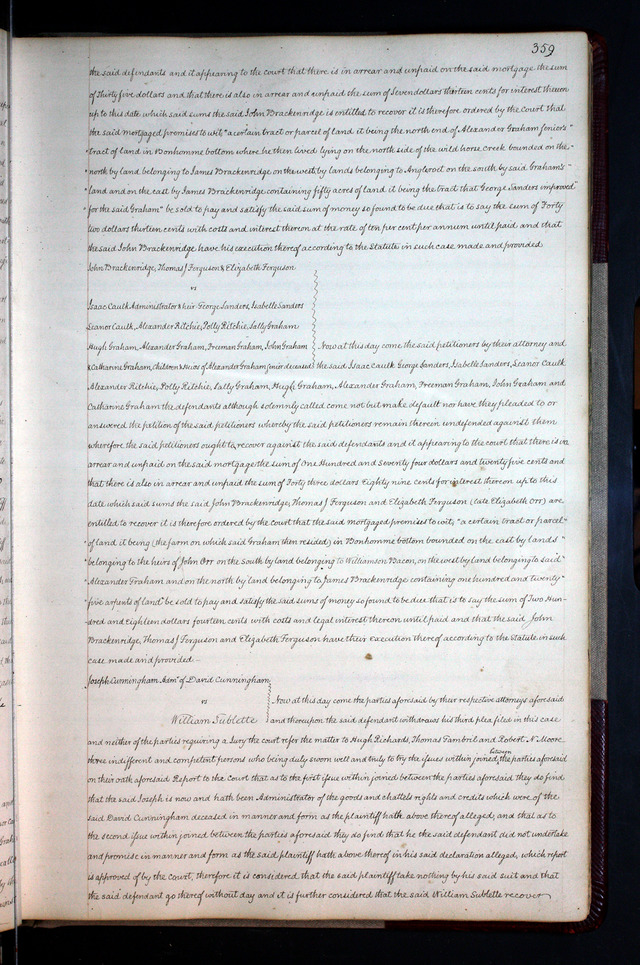 359
the said defendants and it appearing to the court that there is in arrear and unpaid on the said mortgage the sum
of Thirty five dollars and that there is also in arrear and unpaid the sum of Seven dollars thirteen cents for interest thereon
up to this date which said sums the said John Brackenridge is entitled to recover it is therefore ordered by the Court that
the said mortgaged premises to wit, "a certain tract or parcel of land it being the north end of Alexander Graham Senior's"
"tract of land in Bonhomme bottom where he then lived lying on the north side of the wild horse creek bounded on the"
"north by land belonging to James Brackenridge on the west by lands belonging to on the south by said Graham's"
"land and on the east by James Brackenridge containing fifty acres of land it being the tract that George Sanders improved
for the said Graham" be sold to pay and satisfy the said sum of money so found to be due that is to say the sum of Forty
two dollars thirteen cents with costs and interest thereon at the rate of ten per cent per annum until paid and that
the said John Brackenridge have his execution thereof according to the Statute in such case made and provided
John Brackenridge, Thomas J Ferguson & Elizabeth Ferguson
vs
Isaac Caulk Administrator & heir George Sanders, Isabelle Sanders
Leanor Caulk, Alexander Ritchie, Polly Ritchie, Sally Graham
Hugh Graham, Alexander Graham, Freeman Graham, John Graham
& Catharine Graham, children & Heirs of Alexander Graham junior deceased
Now at this day come the said petitioners by their attorney and
the said Isaac Caulk George Sanders, Isabelle Sanders, Leanor Caulk
Alexander Ritchie, Polly Ritchie, Sally Graham, Hugh Graham, Alexander Graham, Freeman Graham, John Graham and
Catharine Graham the defendants although solemnly called come not but make default nor have they pleaded to or
answered the petition of the said petitioners whereby the said petitioners remain therein undefended against them
wherefore the said petitioners ought to recover against the said defendants and it appearing to the court that there is in
arrear and unpaid on the said mortgage the sum of One Hundred and Seventy four dollars and twenty five cents and
that there is also in arrear and unpaid the sum of Forty three dollars Eighty nine cents for interest thereon up to this
date which said sums the said John Brackenridge, Thomas J Ferguson and Elizabeth Ferguson (late Elizabeth Orr) are
entitled to recover it is therefore ordered by the court that the said mortgaged premises to wit, "a certain tract or parcel"
"of land it being (the farm on which said Graham then resided) in Bonhomme bottom bounded on the east by lands"
"belonging to the heirs of John Orr on the South by land belonging to Williamson Bacon, on the west by land belonging to said"
"Alexander Graham and on the north by land belonging to James Brackenridge containing one hundred and twenty"
"five arpents of land" be sold to pay and satisfy the said sums of money so found to be due that is to say the sum of Two Hun-
-dred and Eighteen dollars fourteen cents with costs and legal interest thereon until paid and that the said John
Brackenridge, Thomas J Ferguson and Elizabeth Ferguson have their Execution thereof according to the Statute in such
case made and provided
Joseph Cunningham Admr of David Cunningham
vs
William Sublette
Now at this day come the parties aforesaid by their respective attorneys aforesaid
and thereupon the said defendant withdraws his third plea filed in this case
and neither of the parties requiring a Jury the court refer the matter to Hugh Richards, Thomas Gambril and Robert N. Moore
between
three indifferent and competent persons who being duly sworn well and truly to try the issues within joined, the parties aforesaid
on their oath aforesaid Report to the Court that as to the first issue within joined between the parties aforesaid they do find
that the said Joseph is now and hath been Administrator of the goods and chattels rights and credits which were of the
said David Cunningham deceased in manner and form as the plaintiff hath above thereof alleged; and that as to
the second issue within joined between the parties aforesaid they do find that he the said defendant did not undertake
and promise in manner and form as the said plaintiff hath above thereof in his said declaration alleged, which report
is approved of by the Court, therefore it is considered that the said plaintiff take nothing by his said suit and that
the said defendant go thereof without day and it is further considered that the said William Sublette recover